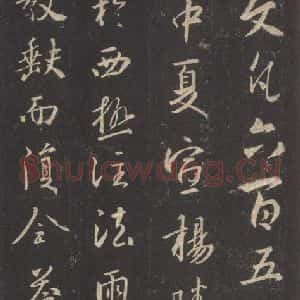 文凡六百五
中夏宣揚勝
於西極注法雨
教缺而復全蒼
Shufawang.CN